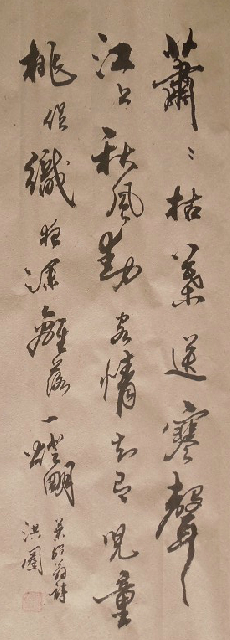 蕭〻梧葉送寒聲
江上秋風動客情知有兒童
挑促織夜深離落一燈明
葉紹翁詩
洪